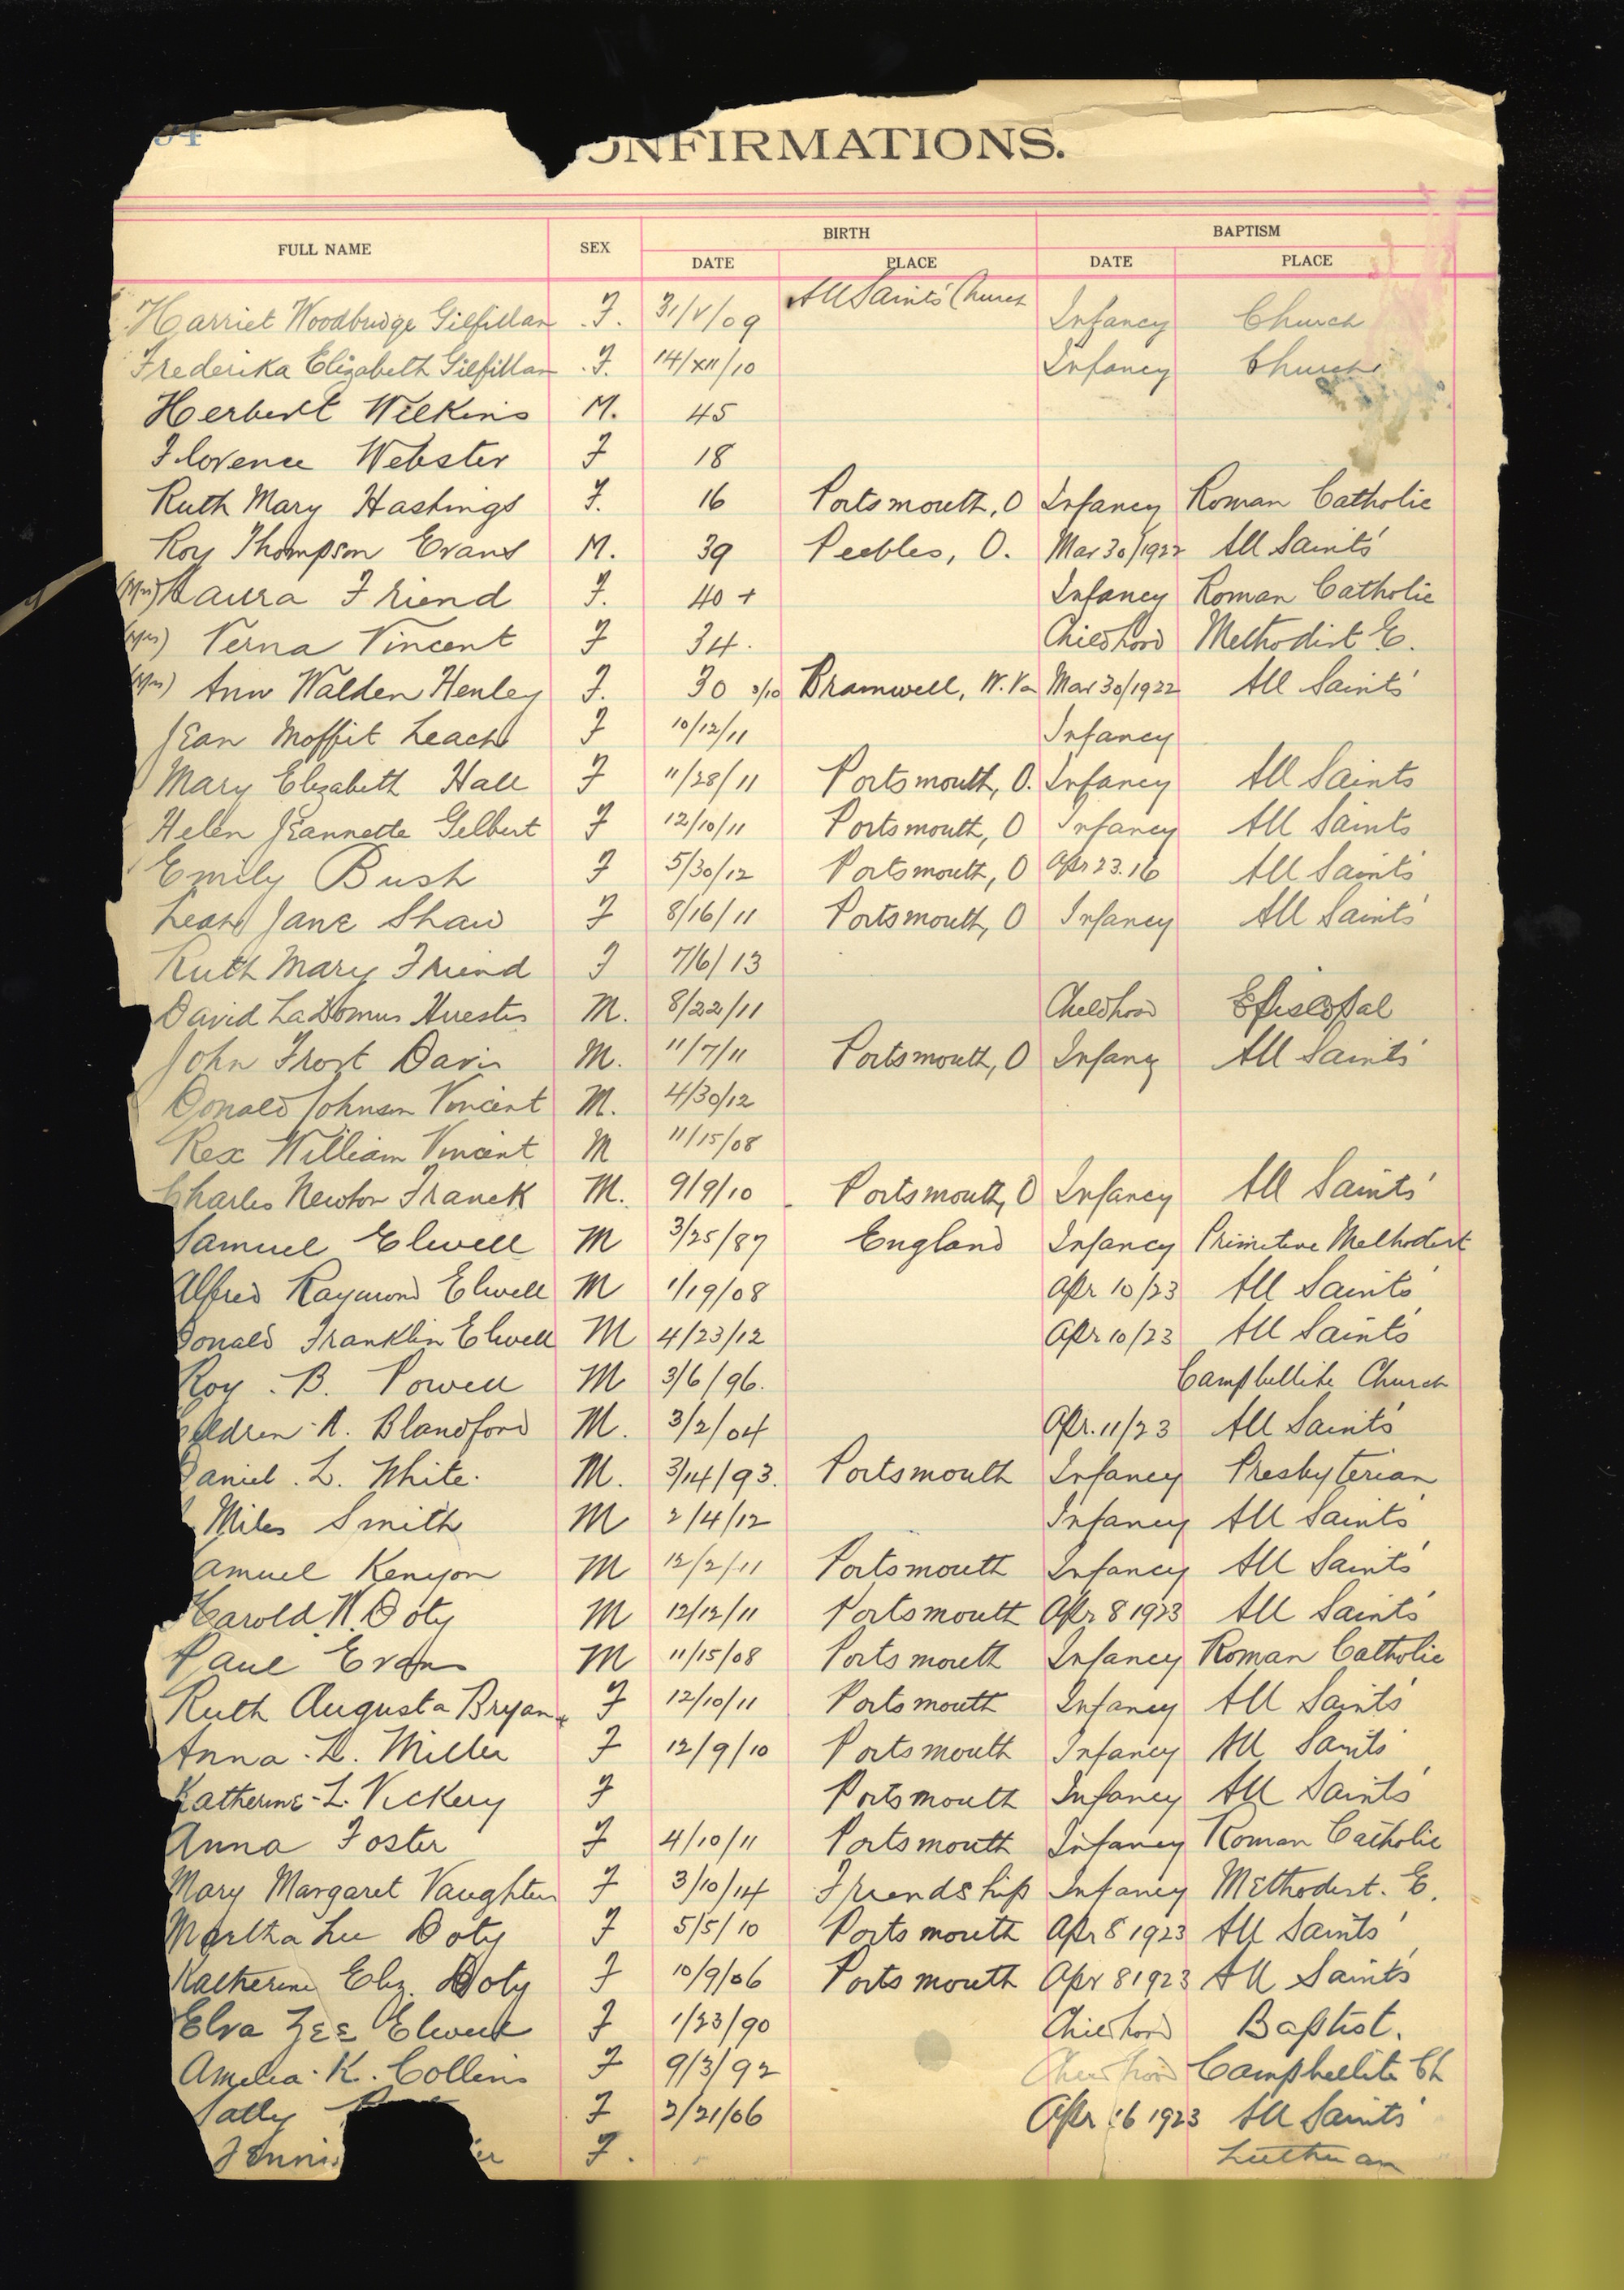 CONFIRMATIONS.
FULL NAME SEX BIRTH BAPTISM
DATE PLACE DATE PLACE
Harriet Woodbridge Gilfillan F. 31/V/09 All Saints' Church Infancy Church
Frederika Elizabeth Gilfillan F. 14/XII/10 Infancy Church
Herbert Wilkins M. 45
Florence Webster F 18
Ruth Mary Hastings F. 16 Portsmouth, O Infancy Roman Catholic
Roy Thompson Evans M. 39 Peebles, O. Mar 30/1922 All Saints'
(Mrs) Laura Friend F. 40 + Infancy Roman Catholic
(Mrs) Verna Vincent F 34. Childhood Methodist E.
(Mrs) Ann Walden Henley F. 30 3/10 Bramwell, W. Va Mar 30/1922 All Saints'
Jean Moffit Leach F 10/12/11 Infancy
Mary Elizabeth Hall F 11/28/11 Portsmouth, O. Infancy All Saints
Helen Jeannette Gilbert F 12/10/11 Portsmouth, O Infancy All Saints
Emily Bush F 5/30/12 Portsmouth, O Apr 23.16 All Saints'
Leah Jane Shaw F 8/16/11 Portsmouth, O Infancy All Saints'
Ruth Mary Friend F 7/6/13
David LaDomus Huestis M. 8/22/11 Childhood Episcopal
John Frost Davis M. 11/7/11 Portsmouth, O Infancy All Saints'
Donald Johnson Vincent M. 4/30/12
Rex William Vincent M 11/15/08
Charles Newton Franck M. 9/9/10 Portsmouth, O Infancy All Saints'
Samuel Elwell M 3/25/87 England Infancy Primitive Methodist
Alfred Raymond Elwell M 1/19/08 Apr 10/23 All Saints'
Donald Franklin Elwell M 4/23/12 Apr 10/23 All Saints'
Roy . B. Powell M 3/6/96. Campbellite Church
A. Blandford M. 3/2/04 Apr. 11/23 All Saints'
Daniel . L. White. M. 3/14/93. Portsmouth Infancy Presbyterian
Miles Smith M 2/4/12 Infancy All Saints'
amuel Kenyon M 12/2/11 Portsmouth Infancy All Saints'
Harold W. Doty M 12/12/11 Portsmouth Apr 8 1923 All Saints'
Paul Evans M 11/15/08 Portsmouth Infancy Roman Catholic
Ruth Augusta Bryan F 12/10/11 Portsmouth Infancy All Saints'
Anna . L. Miller F 12/9/10 Portsmouth Infancy All Saints'
Katherine - L. Vickery F Portsmouth Infancy All Saints'
Anna Foster F 4/10/11 Portsmouth Infancy Roman Catholic
Mary Margaret Vaughters F 3/10/14 Friendship Infancy Methodist. E.
Martha Lee Doty F 5/5/10 Portsmouth Apr 8 1923 All Saints'
Katherine Eliz. Doty F 10/9/06 Portsmouth Apr 8 1923 All Saints'
Elva Lee Elwell F 1/23/90 Childhood Baptist.
Amelia . K. Collins F 9/3/92 Childhood Campbellite Ch
Sally F 2/21/06 Apr 16 1923 All Saints'
F. Lutheran